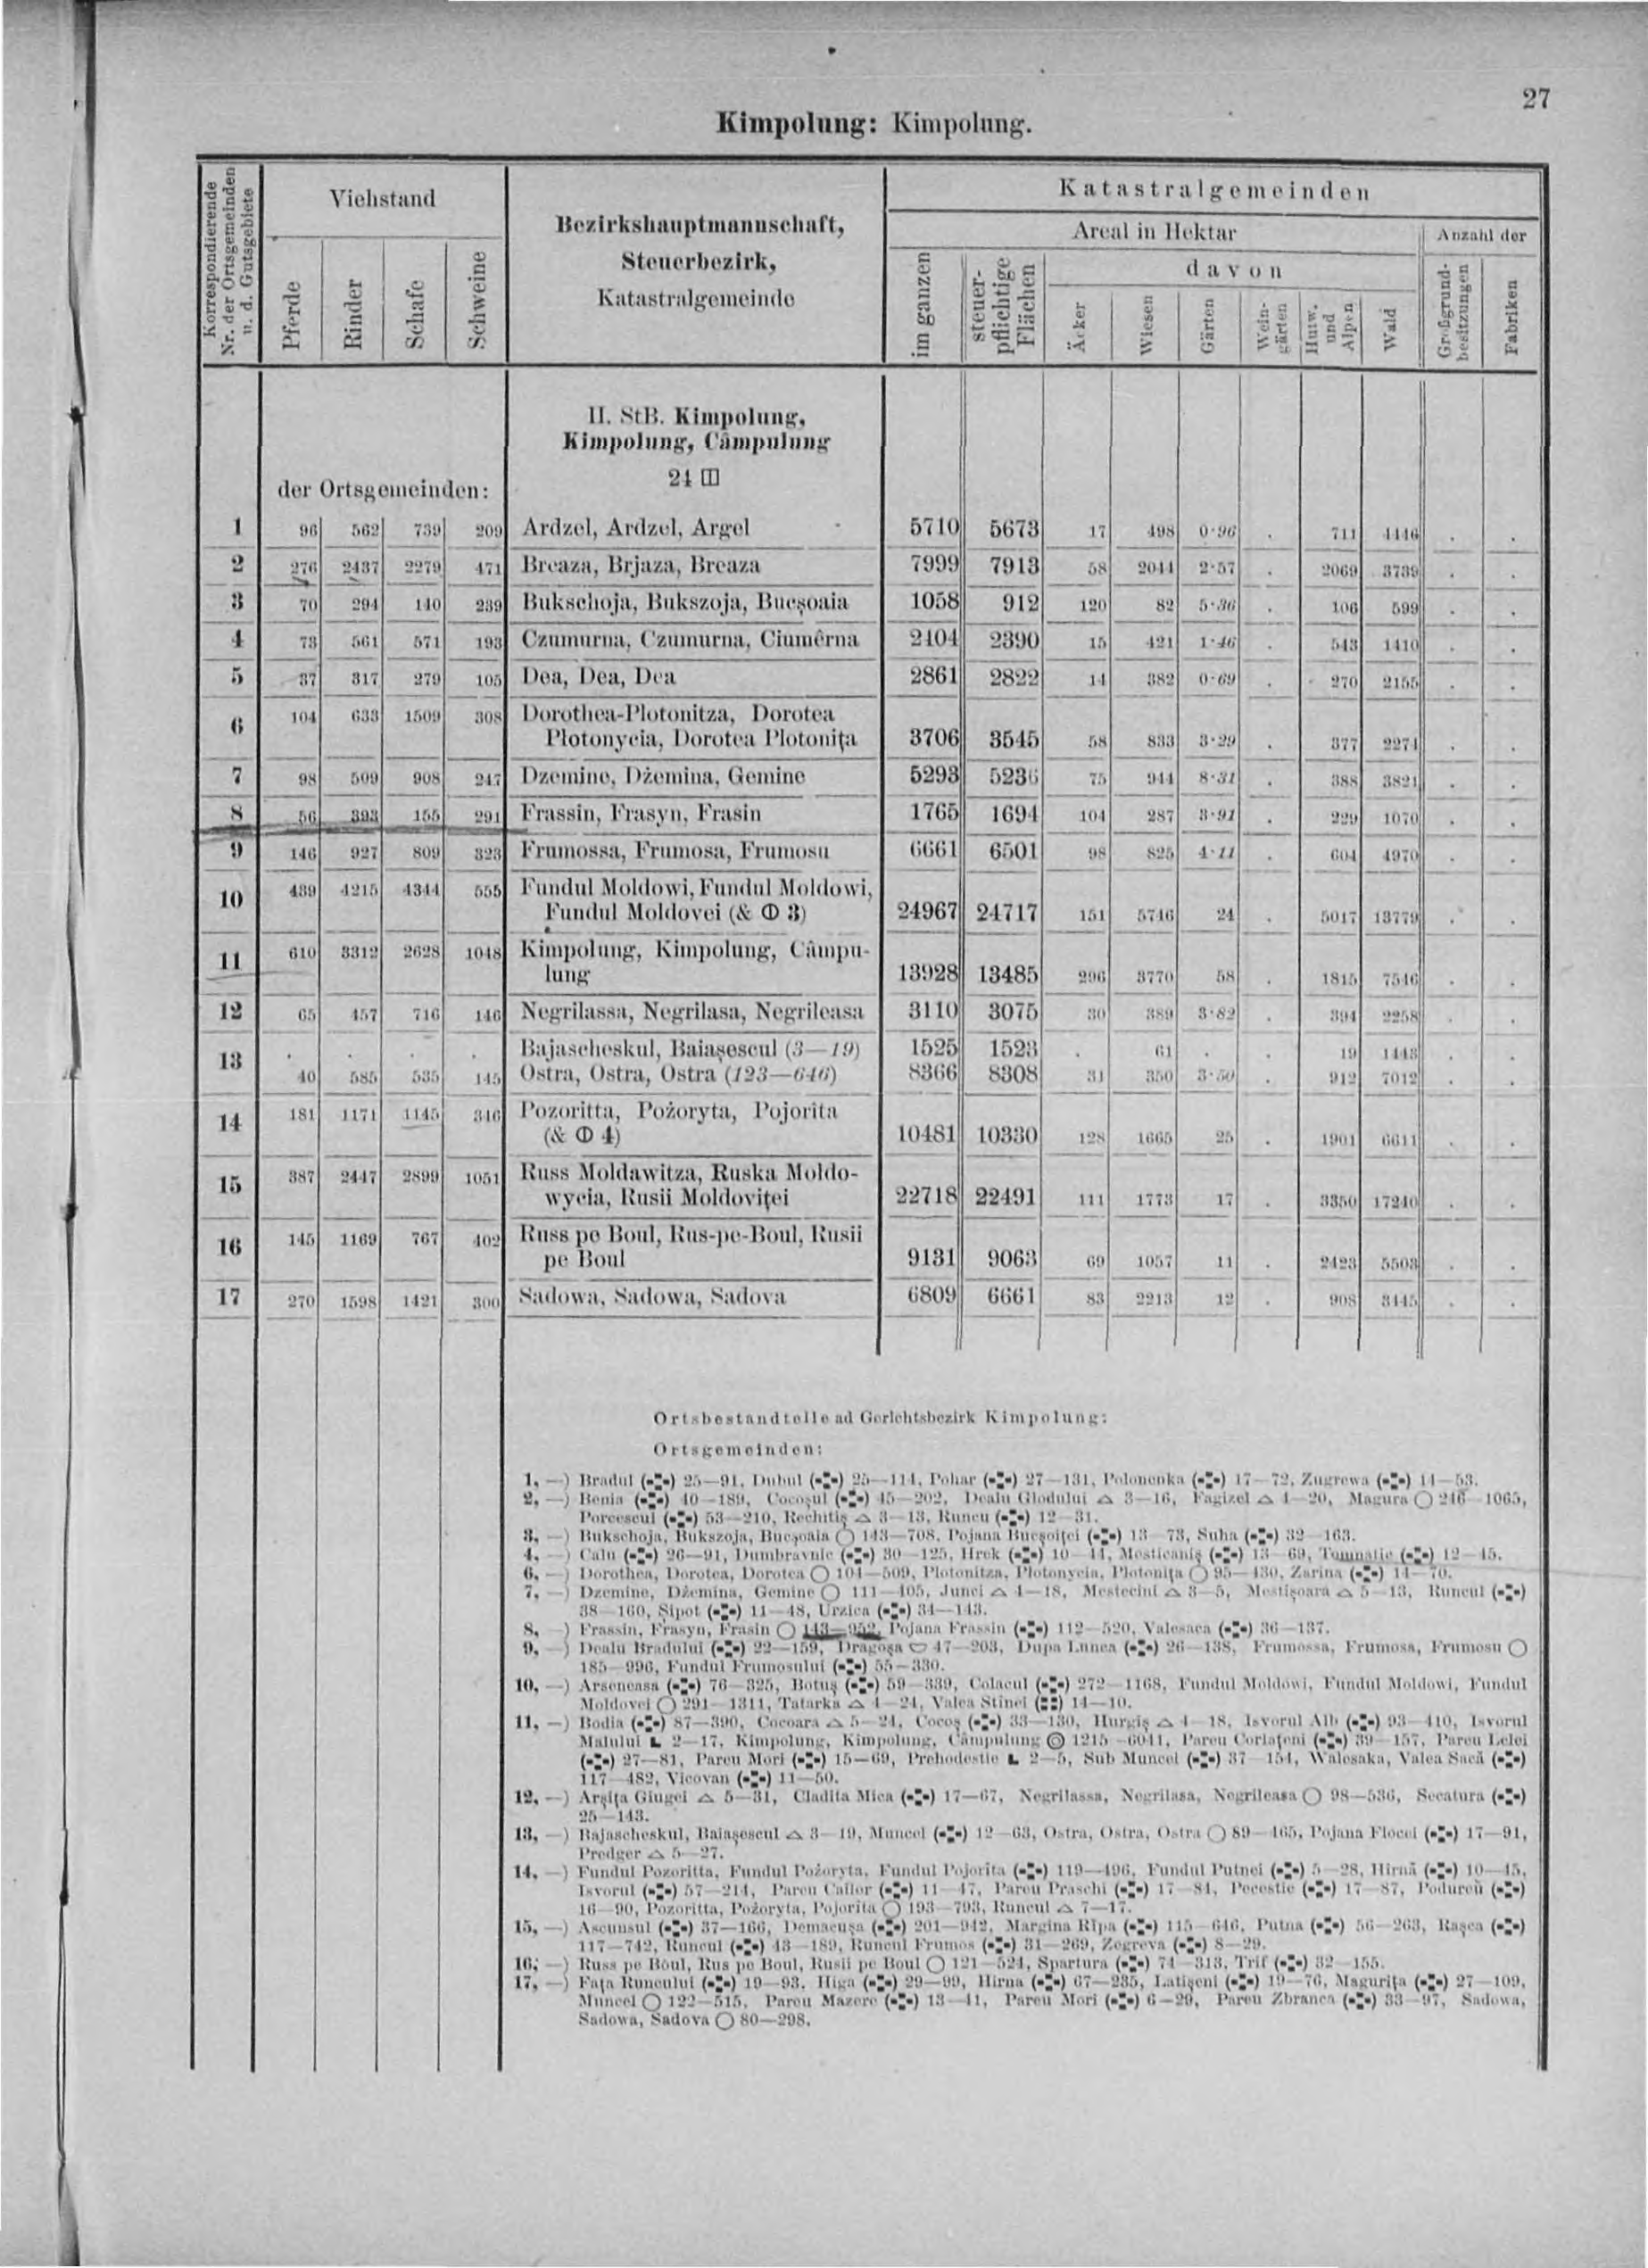 27
Kimpolung: Kimpolung.
Korrespondierende Nr. der Ortsgemeinden u. d. Gutsgebiete
Viehstand
Pferde Rinder Schafe Schweine
Bezirkshauptmannschaft,
Steuerbezirk,
Katastralgemeinde
Katastralgemeinden
Areal in Hektar
Anzahl der
im ganzen
steuerpflichtige Flächen
davon
Äcker Wiesen Gärten Weingärten Hutw. und Alpen Wald
Großgrundbesitzungen Fabriken
II. StB. Kimpolung,
Kimpolung, Câmpulung
24
der Ortsgemeinden:
1 96 562 739 209 Ardzel, Ardzel, Argel 5710 5673 17 498 0·96 . 711 4446 . .
2 276 2437 2279 471 Breaza, Brjaza, Breaza 7999 7913 58 2044 2·57 . 2069 3739 . .
3 70 294 140 239 Bukschoja, Bukszoja, Bucșoaia 1058 912 120 82 5·36 . 106 599 . .
4 73 561 571 193 Czumurna, Czumurna, Ciumêrna 2404 2390 15 421 1·46 . 543 1410 . .
5 37 317 279 105 Dea, Dea, Dea 2861 2822 14 382 0·69 . 270 2155 . .
6 104 633 1509 308 Dorothea-Plotonitza, Dorotea
Plotonycia, Dorotea Plotonița 3706 3545 58 833 3·29 . 377 2274 . .
7 98 509 908 247 Dzemine, Dżemina, Gemine 5293 5236 75 944 8·31 . 388 3821 . .
8 56 393 155 291 Frassin, Frasyn, Frasin 1765 1694 104 287 3·91 . 229 1070 . .
9 146 927 809 323 Frumossa, Frumosa, Frumosu 6661 6501 98 825 4·11 . 604 4970 . .
10 439 4215 4344 555 Fundul Moldowi, Fundul Moldowi,
Fundul Moldovei (& Ⓘ 3) 24967 24717 151 5746 24 . 5017 13779 . .
11 610 3312 2628 1048 Kimpolung, Kimpolung, Câmpu-
lung 13928 13485 296 3770 58 1815 7546 . .
12 65 457 716 146 Negrilassa, Negrilasa, Negrileasa 3110 3075 30 389 3·82 . 394 2258 . .
13 . . . . Bajascheskul, Baiașescul (3—19) 1525 1523 . 61 . . 19 1443 . .
40 585 535 145 Ostra, Ostra, Ostra (123—646) 8366 8308 31 350 3·50 . 912 7012 . .
14 181 1171 1145 346 Pozoritta, Pożoryta, Pojorita
(& Ⓘ 4) 10481 10330 128 1665 25 . 1901 6611 . .
15 387 2447 2899 1051 Russ Moldawitza, Ruska Moldo-
wycia, Rusii Moldoviței 22718 22491 111 1773 17 . 3350 17240 . .
16 145 1169 767 402 Russ pe Boul, Rus-pe-Boul, Rusii
pe Boul 9131 9063 69 1057 11 . 2423 5503 . .
17 270 1598 1421 300 Sadowa, Sadowa, Sadova 6809 6661 83 2213 12 . 908 3445 . .
Ortsbestandteile ad Gerichtsbezirk Kimpolung:
Ortsgemeinden:
1, —) Bradul 25—91, Dubul 25—114, Pohar 27—131, Polonenka 17—72, Zugrewa 14—53.
2, —) Benia 40—189, Cocoșul 45—202, Dealu Glodului △ 3—16, Fagizel △ 4—20, Magura ○ 246—1065,
Porcescul 53—210, Rechitiș △ 3—13, Runcu 12—31.
3, —) Bukschoja, Bukszoja, Bucșoaia ○ 143—708, Pojana Bucșoiței 13—73, Suha 32—163.
4, —) Calu 26—91, Dumbravnic 30—125, Hrek 10—44, Mesticaniș 13—69, Tomnatic 12—45.
6, —) Dorothea, Dorotea, Dorotea ○ 104—509, Plotonitza, Plotonycia, Plotonița ○ 95—430, Zarina 14—70.
7, —) Dzemine, Dżemina, Gemine ○ 111—405, Junci △ 4—18, Mestecini △ 3—5, Mestișoara △ 5—13, Runcul
38—160, Șipot 11—48, Urzica 34—143.
8, —) Frassin, Frasyn, Frasin ○ 143—952, Pojana Frassin 112—520, Valesaca 36—137.
9, —) Dealu Bradului 22—159, Dragoșa 47—203, Dupa Lunca 26—138, Frumossa, Frumosa, Frumosu ○
185—996, Fundul Frumosului 55—330.
10, —) Arseneasa 76—325, Botuș 59—339, Colacul 272—1168, Fundul Moldowi, Fundul Moldowi, Fundul
Moldovei ○ 291—1311, Tatarka △ 4—24, Valea Stinei 14—10.
11, —) Bodia 87—390, Cocoara △ 5—24, Cocoș 33—130, Hurgiș △ 4—18, Isvorul Alb 93—410, Isvorul
Malului 2—17, Kimpolung, Kimpolung, Câmpulung ◎ 1215—6041, Pareu Corlațeni 39—157, Pareu Lelei
27—81, Pareu Mori 15—69, Prehodestie 2—5, Sub Muncel 37—154, Walesaka, Valea Sacă
117—482, Vicovan 11—50.
12, —) Arșița Giugei △ 5—31, Cladita Mica 17—67, Negrilassa, Negrilasa, Negrileasa ○ 98—536, Secatura
25—143.
13, —) Bajascheskul, Baiașescul △ 3—19, Muncel 12—63, Ostra, Ostra, Ostra ○ 89—465, Pojana Flocei 17—91,
Prodger △ 5—27.
14, —) Fundul Pozoritta, Fundul Pożoryta, Fundul Pojorita 119—496, Fundul Putnei 5—28, Hirnă 10—45,
Isvorul 57—214, Pareu Cailor 11—47, Pareu Praschi 17—84, Pecestie 17—87, Podureŭ
16—90, Pozoritta, Pożoryta, Pojorita ○ 193—793, Runcul △ 7—17.
15, —) Ascunsul 37—166, Demacușa 201—942, Margina Rîpa 115—646, Putna 56—263, Rașca
117—742, Runcul 43—189, Runcul Frumos 31—269, Zegreva 8—29.
16, —) Russ pe Boul, Rus pe Boul, Rusii pe Boul ○ 121—524, Spartura 74—313, Trif 32—155.
17, —) Fața Runcului 19—93, Higa 29—99, Hirna 67—235, Latișeni 19—76, Magurița 27—109,
Muncel ○ 122—515, Pareu Mazere 13—41, Pareu Mori 6—29, Pareu Zbranca 33—97, Sadowa,
Sadowa, Sadova ○ 80—298.